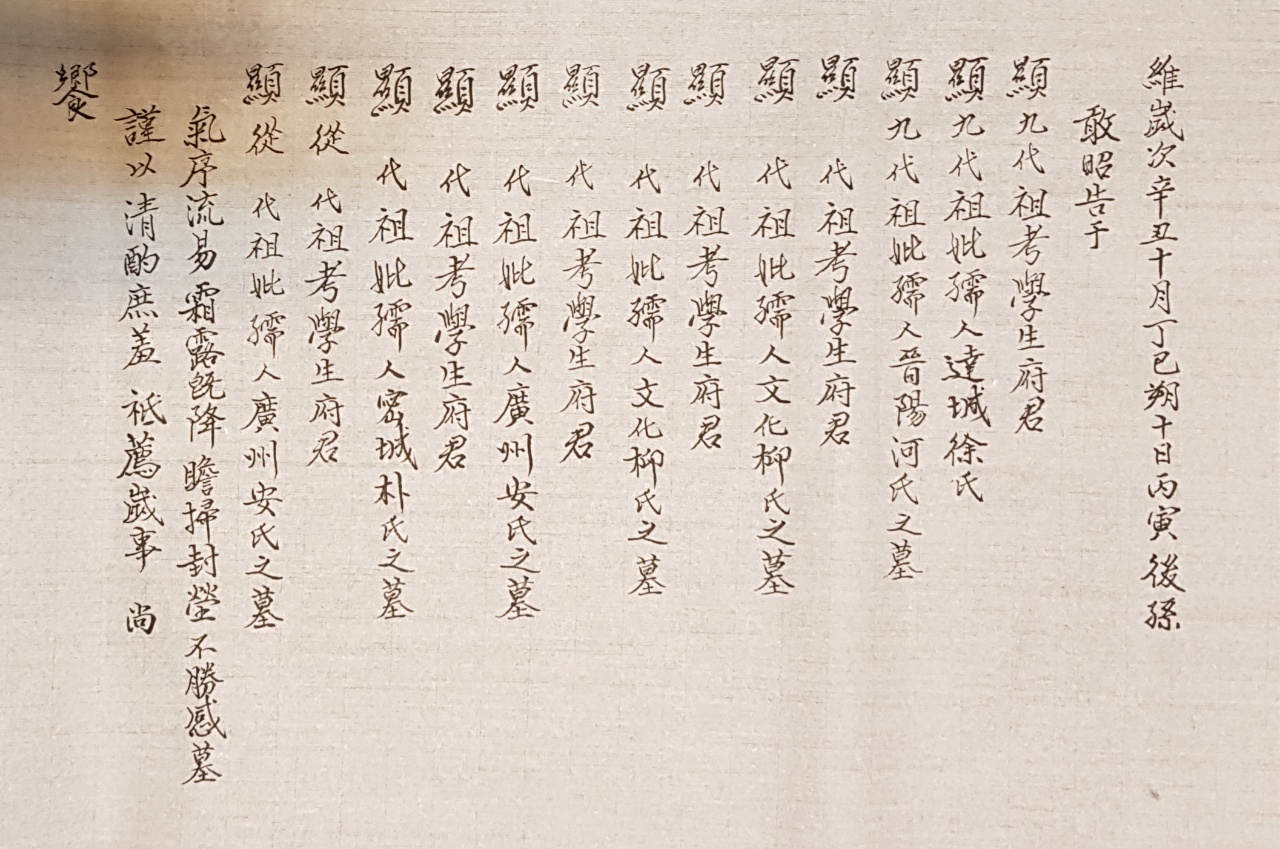 維歲次辛丑十月丁巳朔十日丙寅 後孫
敢昭告于
顯九代祖考學生府君
顯九代祖妣孺人達城徐氏
顯九代祖妣孺人晉陽河氏之墓
顯 代祖考學生府君
顯 代祖妣孺人文化柳氏之墓
顯 代祖考學生府君
顯 代祖妣孺人文化柳氏之墓
顯 代祖考學生府君
顯 代祖妣孺人廣州安氏之墓
顯 代祖考學生府君
顯 代祖妣孺人密城朴氏之墓
顯從 代祖考學生府君
顯從 代祖妣孺人廣州安氏之墓
氣序流易霜露旣降 瞻掃封瑩不勝感墓
謹以清酌庶羞 祗薦歲事 尚
饗